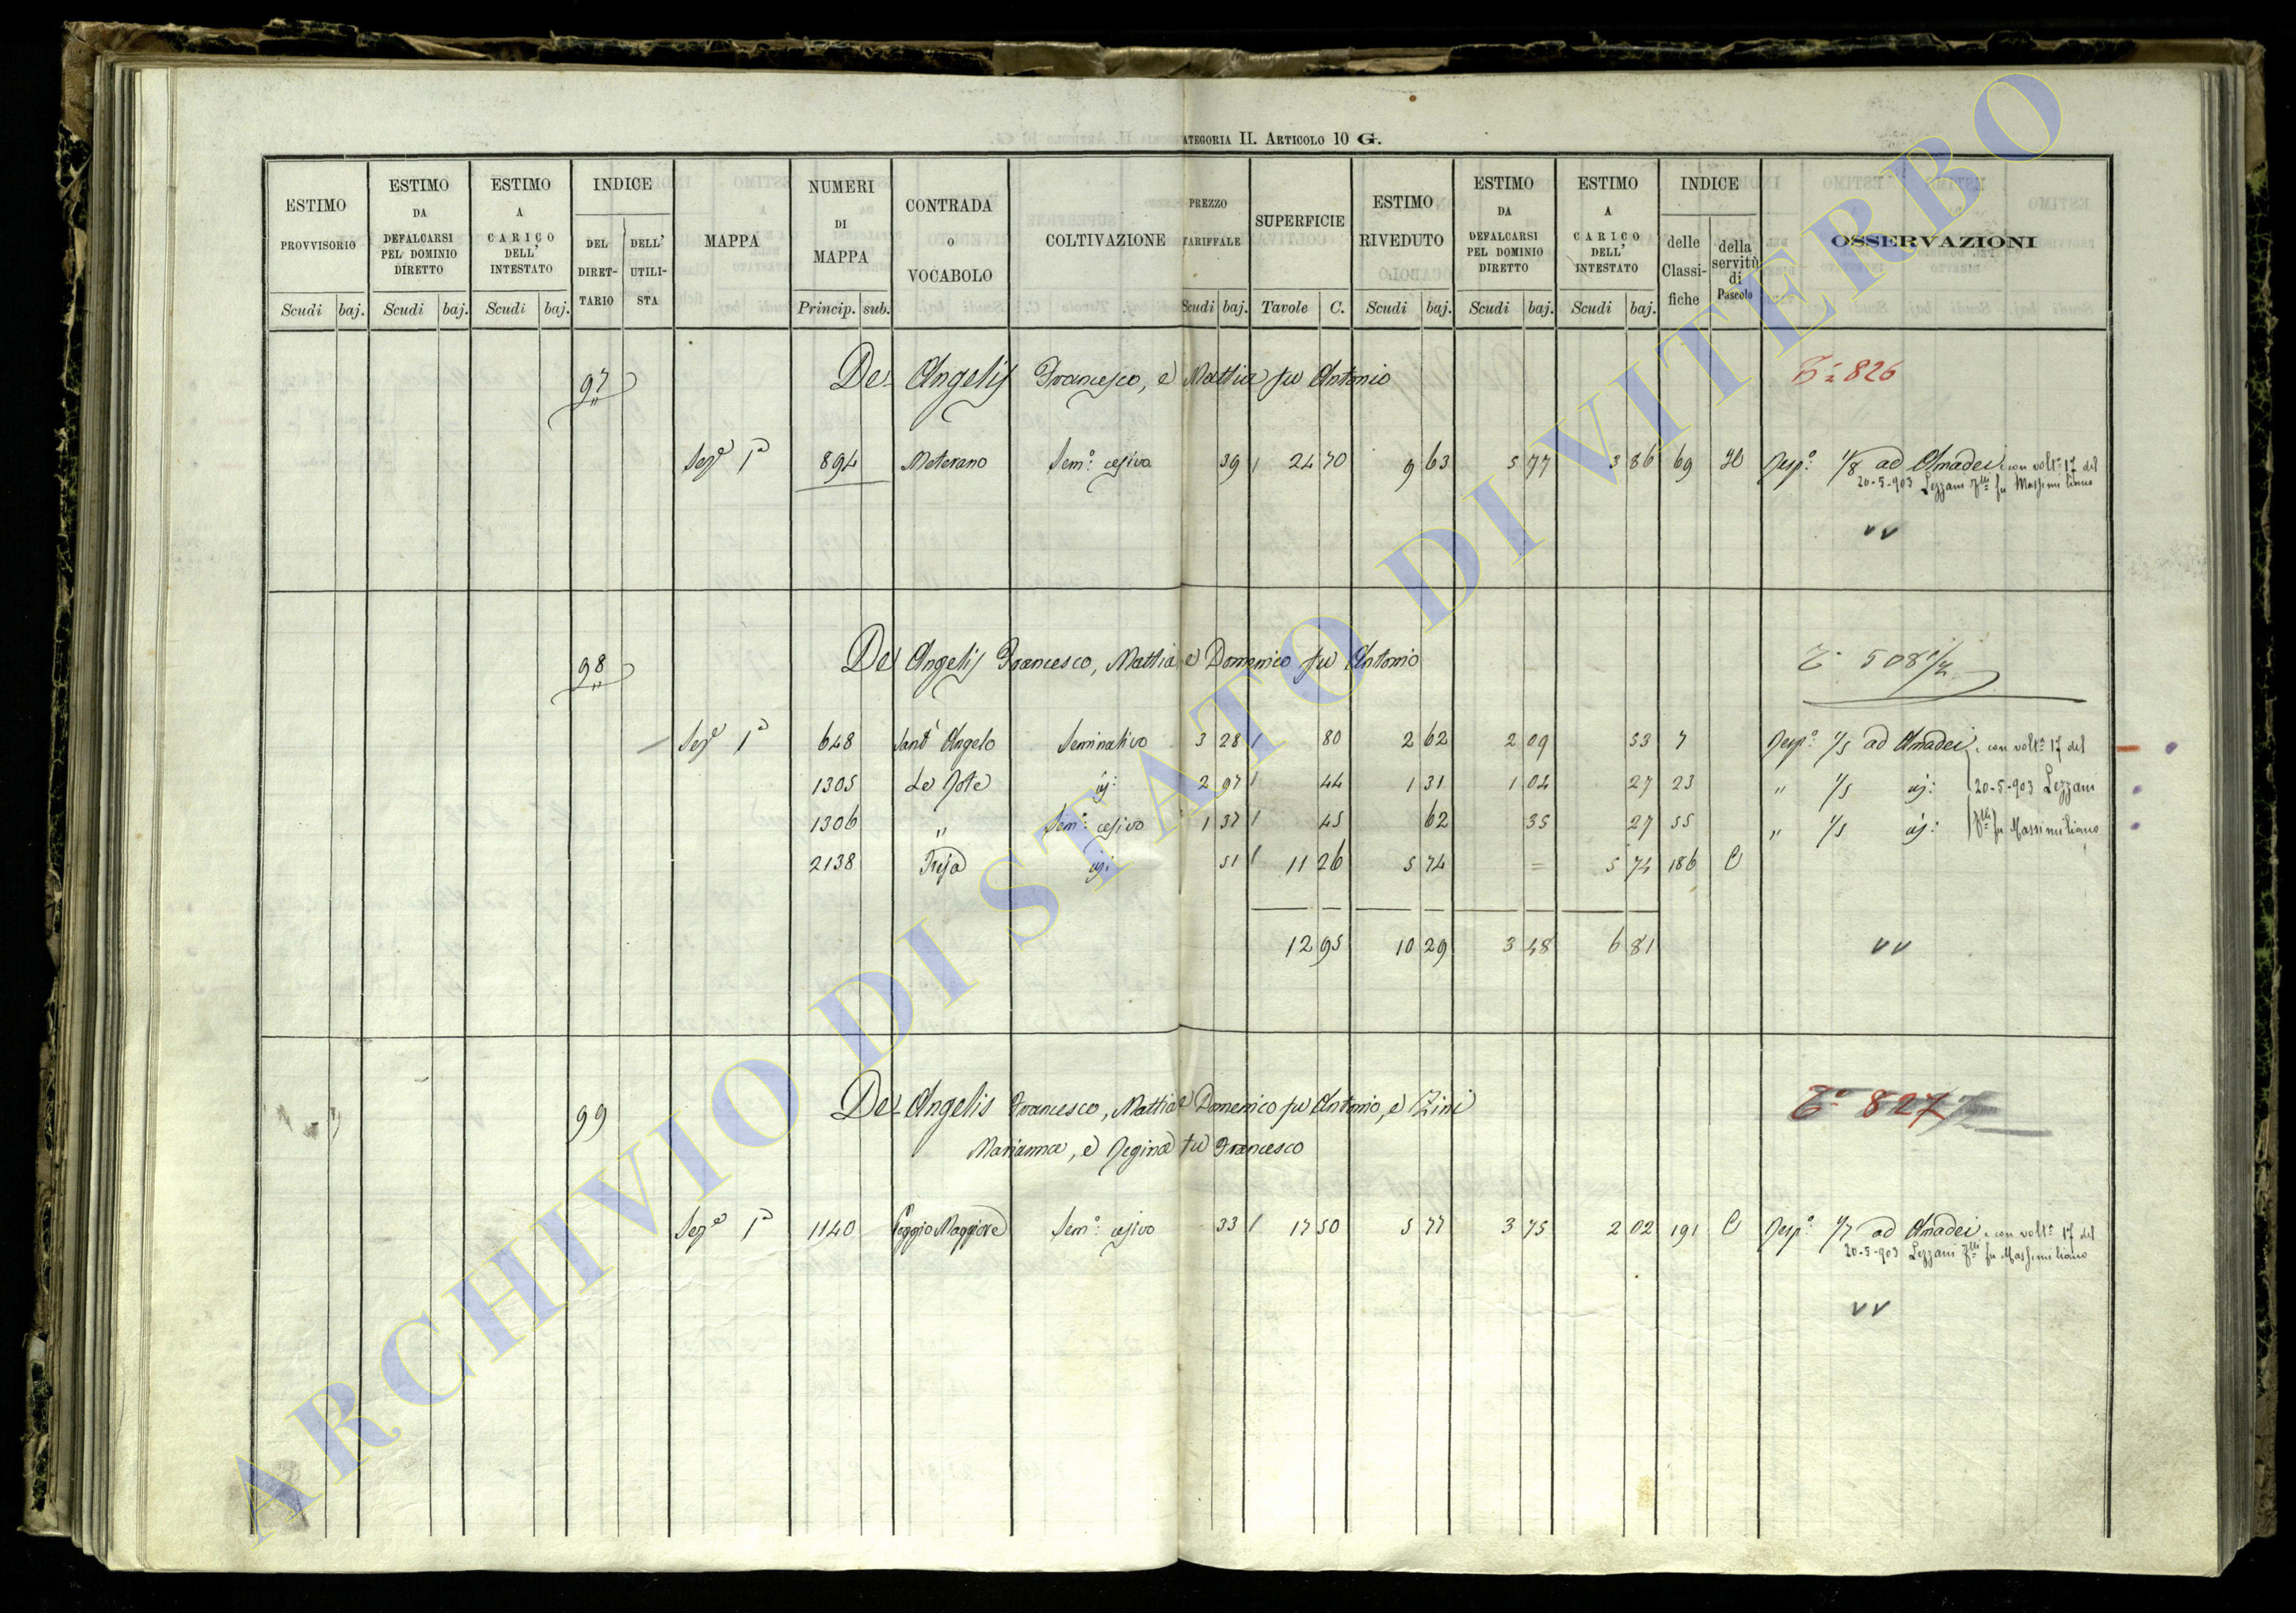 ATEGORIA II. ARTICOLO 10 G.
ESTIMO PROVVISORIO Scudi baj. | ESTIMO DA DEFALCARSI PEL DOMINIO DIRETTO Scudi baj. | ESTIMO A CARICO DELL' INTESTATO Scudi baj. | INDICE DEL DIRET-TARIO DELL' UTILI-STA | MAPPA | NUMERI DI MAPPA Princip. sub. | CONTRADA O VOCABOLO | COLTIVAZIONE | PREZZO TARIFFALE Scudi baj. | SUPERFICIE Tavole C. | ESTIMO RIVEDUTO Scudi baj. | ESTIMO DA DEFALCARSI PEL DOMINIO DIRETTO Scudi baj. | ESTIMO A CARICO DELL' INTESTATO Scudi baj. | INDICE delle Classi-fiche della servitù di Pascolo | OSSERVAZIONI
97 De Angelis Francesco, e Mattia fu Antonio 826
Sez.e 1a 894 Meterano Sem.o cesivo 39 24 70 9 63 5 77 3 86 69 Risp.a 1/8 ad Amadei e con volt.a 17 del
20-5-903 Lezzani F.lli fu Massimiliano
vv
98 De Angelis Francesco, Mattia e Domenico fu Antonio 508 1/2
Sez.e 1a 648 Sant' Angelo Seminativo 3 28 80 2 62 2 09 53 7 Risp.a 1/5 ad Amadei e con volt.a 17 del
1305 Le Rote id: 2 97 44 1 31 1 04 27 23 " 1/5 id: 20-5-903 Lezzani
1306 " Sem.o cesivo 1 37 45 62 35 27 55 " 1/5 id: F.lli fu Massimiliano
2138 Treja id: 51 11 26 5 74 = 5 74 186 C
12 95 10 29 3 48 6 81 vv
99 De Angelis Francesco, Mattia e Domenico fu Antonio, e Zini 827
Marianna, e Regina fu Francesco
Sez.e 1a 1140 Poggio Maggiore Sem.o cesivo 33 17 50 5 77 3 75 2 02 191 C Risp.a 1/7 ad Amadei e con volt.a 17 del
20-5-903 Lezzani F.lli fu Massimiliano
vv
ARCHIVIO DI STATO DI VITERBO